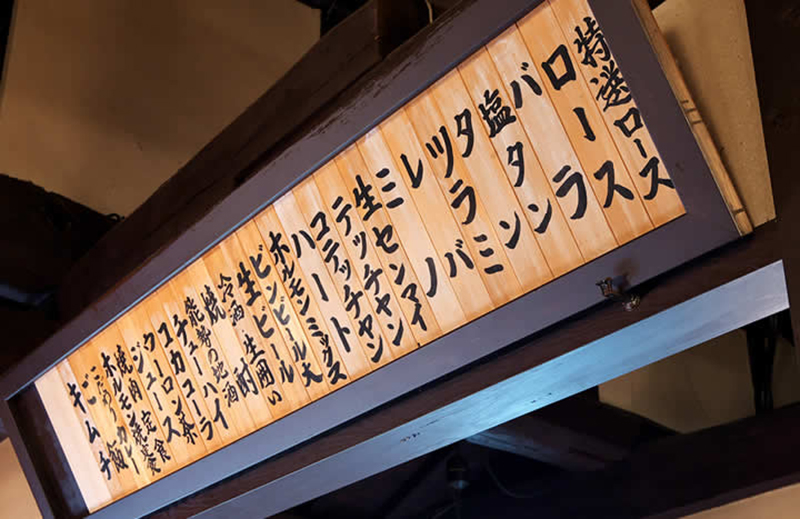 特選ロース
ロース
バラ
塩タン
タン
ツラミ
レバー
ミノ
生センマイ
テッチャン
コテッチャン
ハート
ホルモンミックス
ビンビール大
生ビール
冷酒
能勢の地酒
チューハイ
コカコーラ
ウーロン茶
ジュース
焼肉定食
ホルモンカレー
ごはん
キムチ